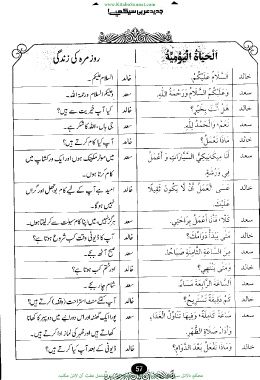 www.KitaboSunnat.com
جدید عربی سیکھیے!
اَلْحَيَاةُ الْيَوْمِيَّةُ
روزمرہ کی زندگی
خالد اَلسَّلَامُ عَلَيْكُمْ. خالد السلام علیکم۔
سعد وَعَلَيْكُمُ السَّلَامُ وَرَحْمَةُ اللهِ. سعد وعلیکم السلام ورحمۃ اللہ۔
خالد هَلْ أَنْتَ بِخَيْرٍ؟ خالد کیا آپ خیریت سے ہیں؟
سعد نَعَمْ، وَالْحَمْدُ لِلّٰهِ. سعد جی ہاں، اللہ کا شکر ہے۔
خالد مَاذَا تَعْمَلُ؟ خالد آپ کیا کام کرتے ہیں؟
سعد أَنَا مِيكَانِيكِيُّ السَّيَّارَاتِ وَ أَعْمَلُ سعد میں موٹر مکینک ہوں اور ایک ورکشاپ میں
فِي وَرْشَةٍ کام کرتا ہوں۔
خالد عَسَى الْعَمَلُ أَنْ لَا يَكُونَ ثَقِيلًا خالد امید ہے آپ کے لیے کام بوجھل اور گراں
عَلَيْكَ نہیں ہوگا۔
سعد كَلَّا، فَأَنَا أَعْمَلُ بِرَاحَتِي. سعد ہرگز نہیں، میں اپنا کام سہولت سے کر لیتا ہوں۔
خالد مَتَى يَبْدَأُ دَوَامُكَ؟ خالد آپ کا ڈیوٹی وقت کب شروع ہوتا ہے؟
سعد مِنَ السَّاعَةِ الثَّامِنَةِ صَبَاحًا. سعد صبح آٹھ بجے۔
خالد وَمَتَى يَنْتَهِي؟ خالد اور ختم کب ہوتا ہے؟
سعد اَلسَّاعَةَ الرَّابِعَةَ مَسَاءً. سعد شام چار بجے۔
خالد كَمْ دَقِيقَةً تَسْتَرِيحُ؟ خالد آپ کتنے منٹ استراحت (وقفہ) کرتے ہیں؟
سعد سَاعَةً كَامِلَةً، وَفِيهَا تَنَاوُلُ الْغَدَاءِ، سعد پورا ایک گھنٹہ اور اس دوران میں دوپہر کا کھانا
وَأَدَاءُ صَلَاةِ الظُّهْرِ. کھاتے ہیں اور ظہر کی نماز ادا کرتے ہیں۔
خالد وَمَاذَا تَفْعَلُ بَعْدَ الدَّوَامِ؟ خالد ڈیوٹی کے بعد آپ کیا کرتے ہیں؟
57